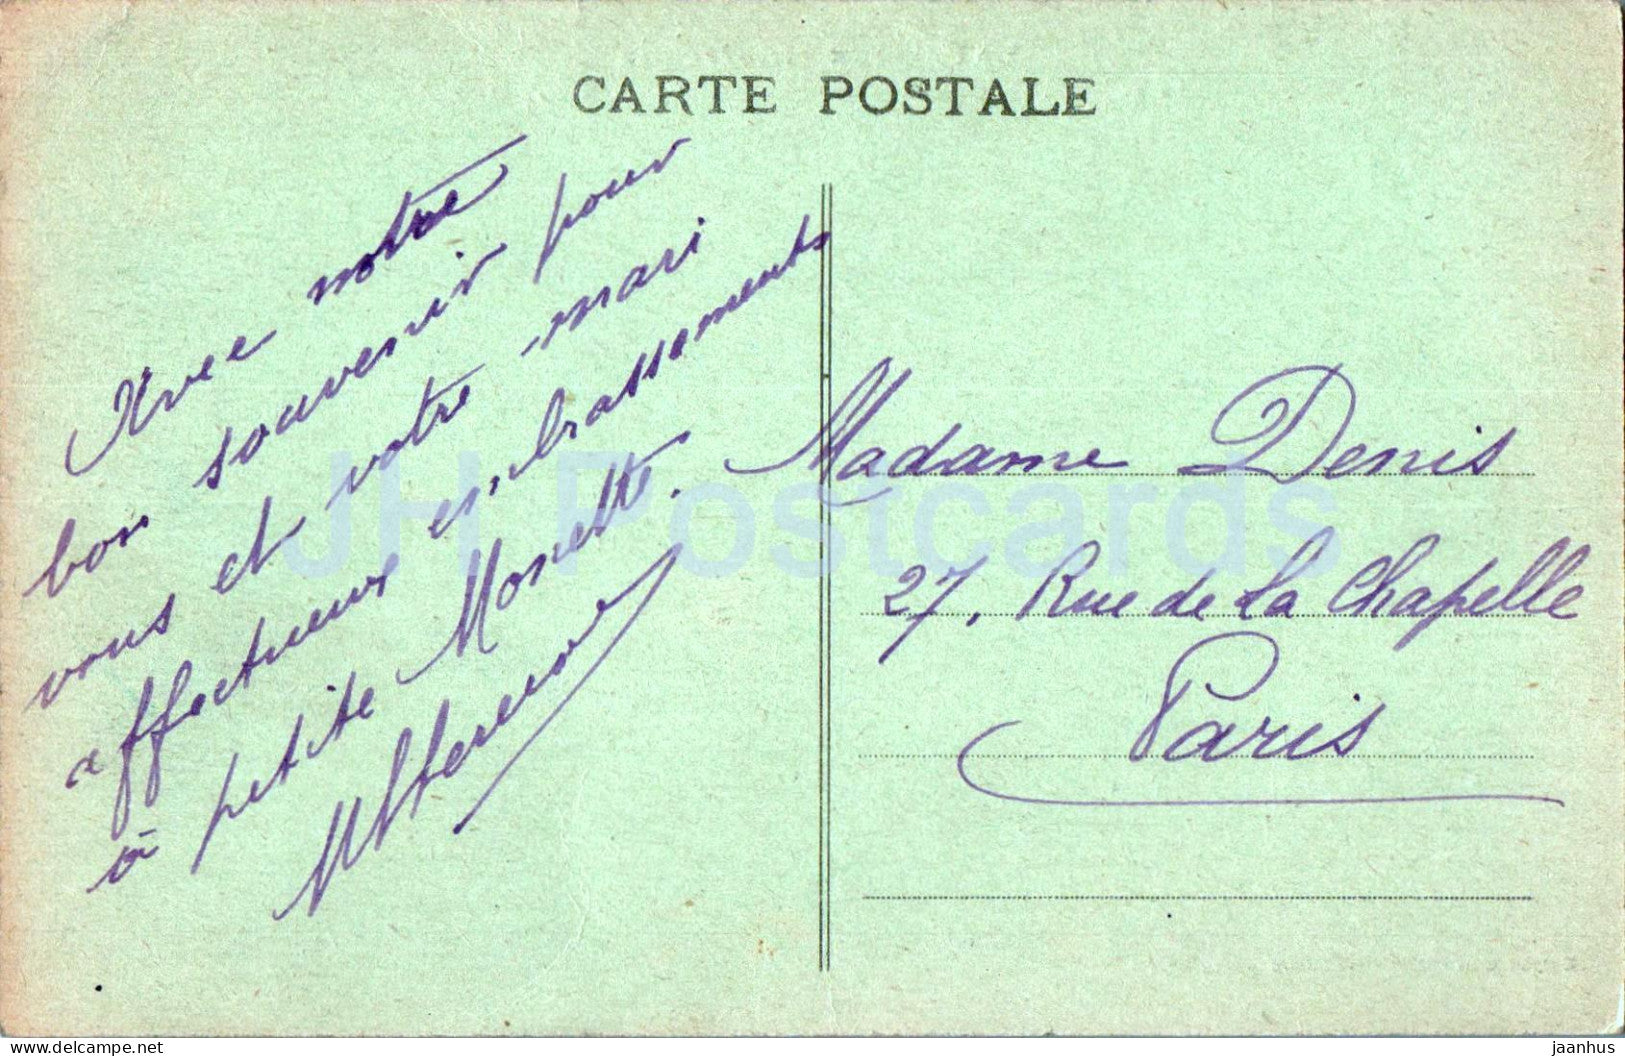 CARTE POSTALE
Avec notre
bon souvenir pour
vous et votre mari
affectueux embrassements
à petite Monette.
Madame Denis
27, Rue de La Chapelle
Paris
JH Postcards
delcampe.net
jaanhus